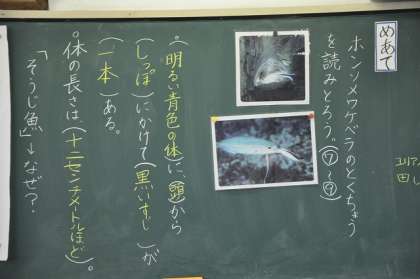 めあて
ホンソメワケベラのとくちょう
を読みとろう。(⑦〜⑨)
。(明るい青色の体)に、(頭)から
(しっぽ)にかけて(黒いすじ)が
(一本)ある。
。体の長さは、(十二センチメートルほど)。
「そうじ魚」→なぜ?